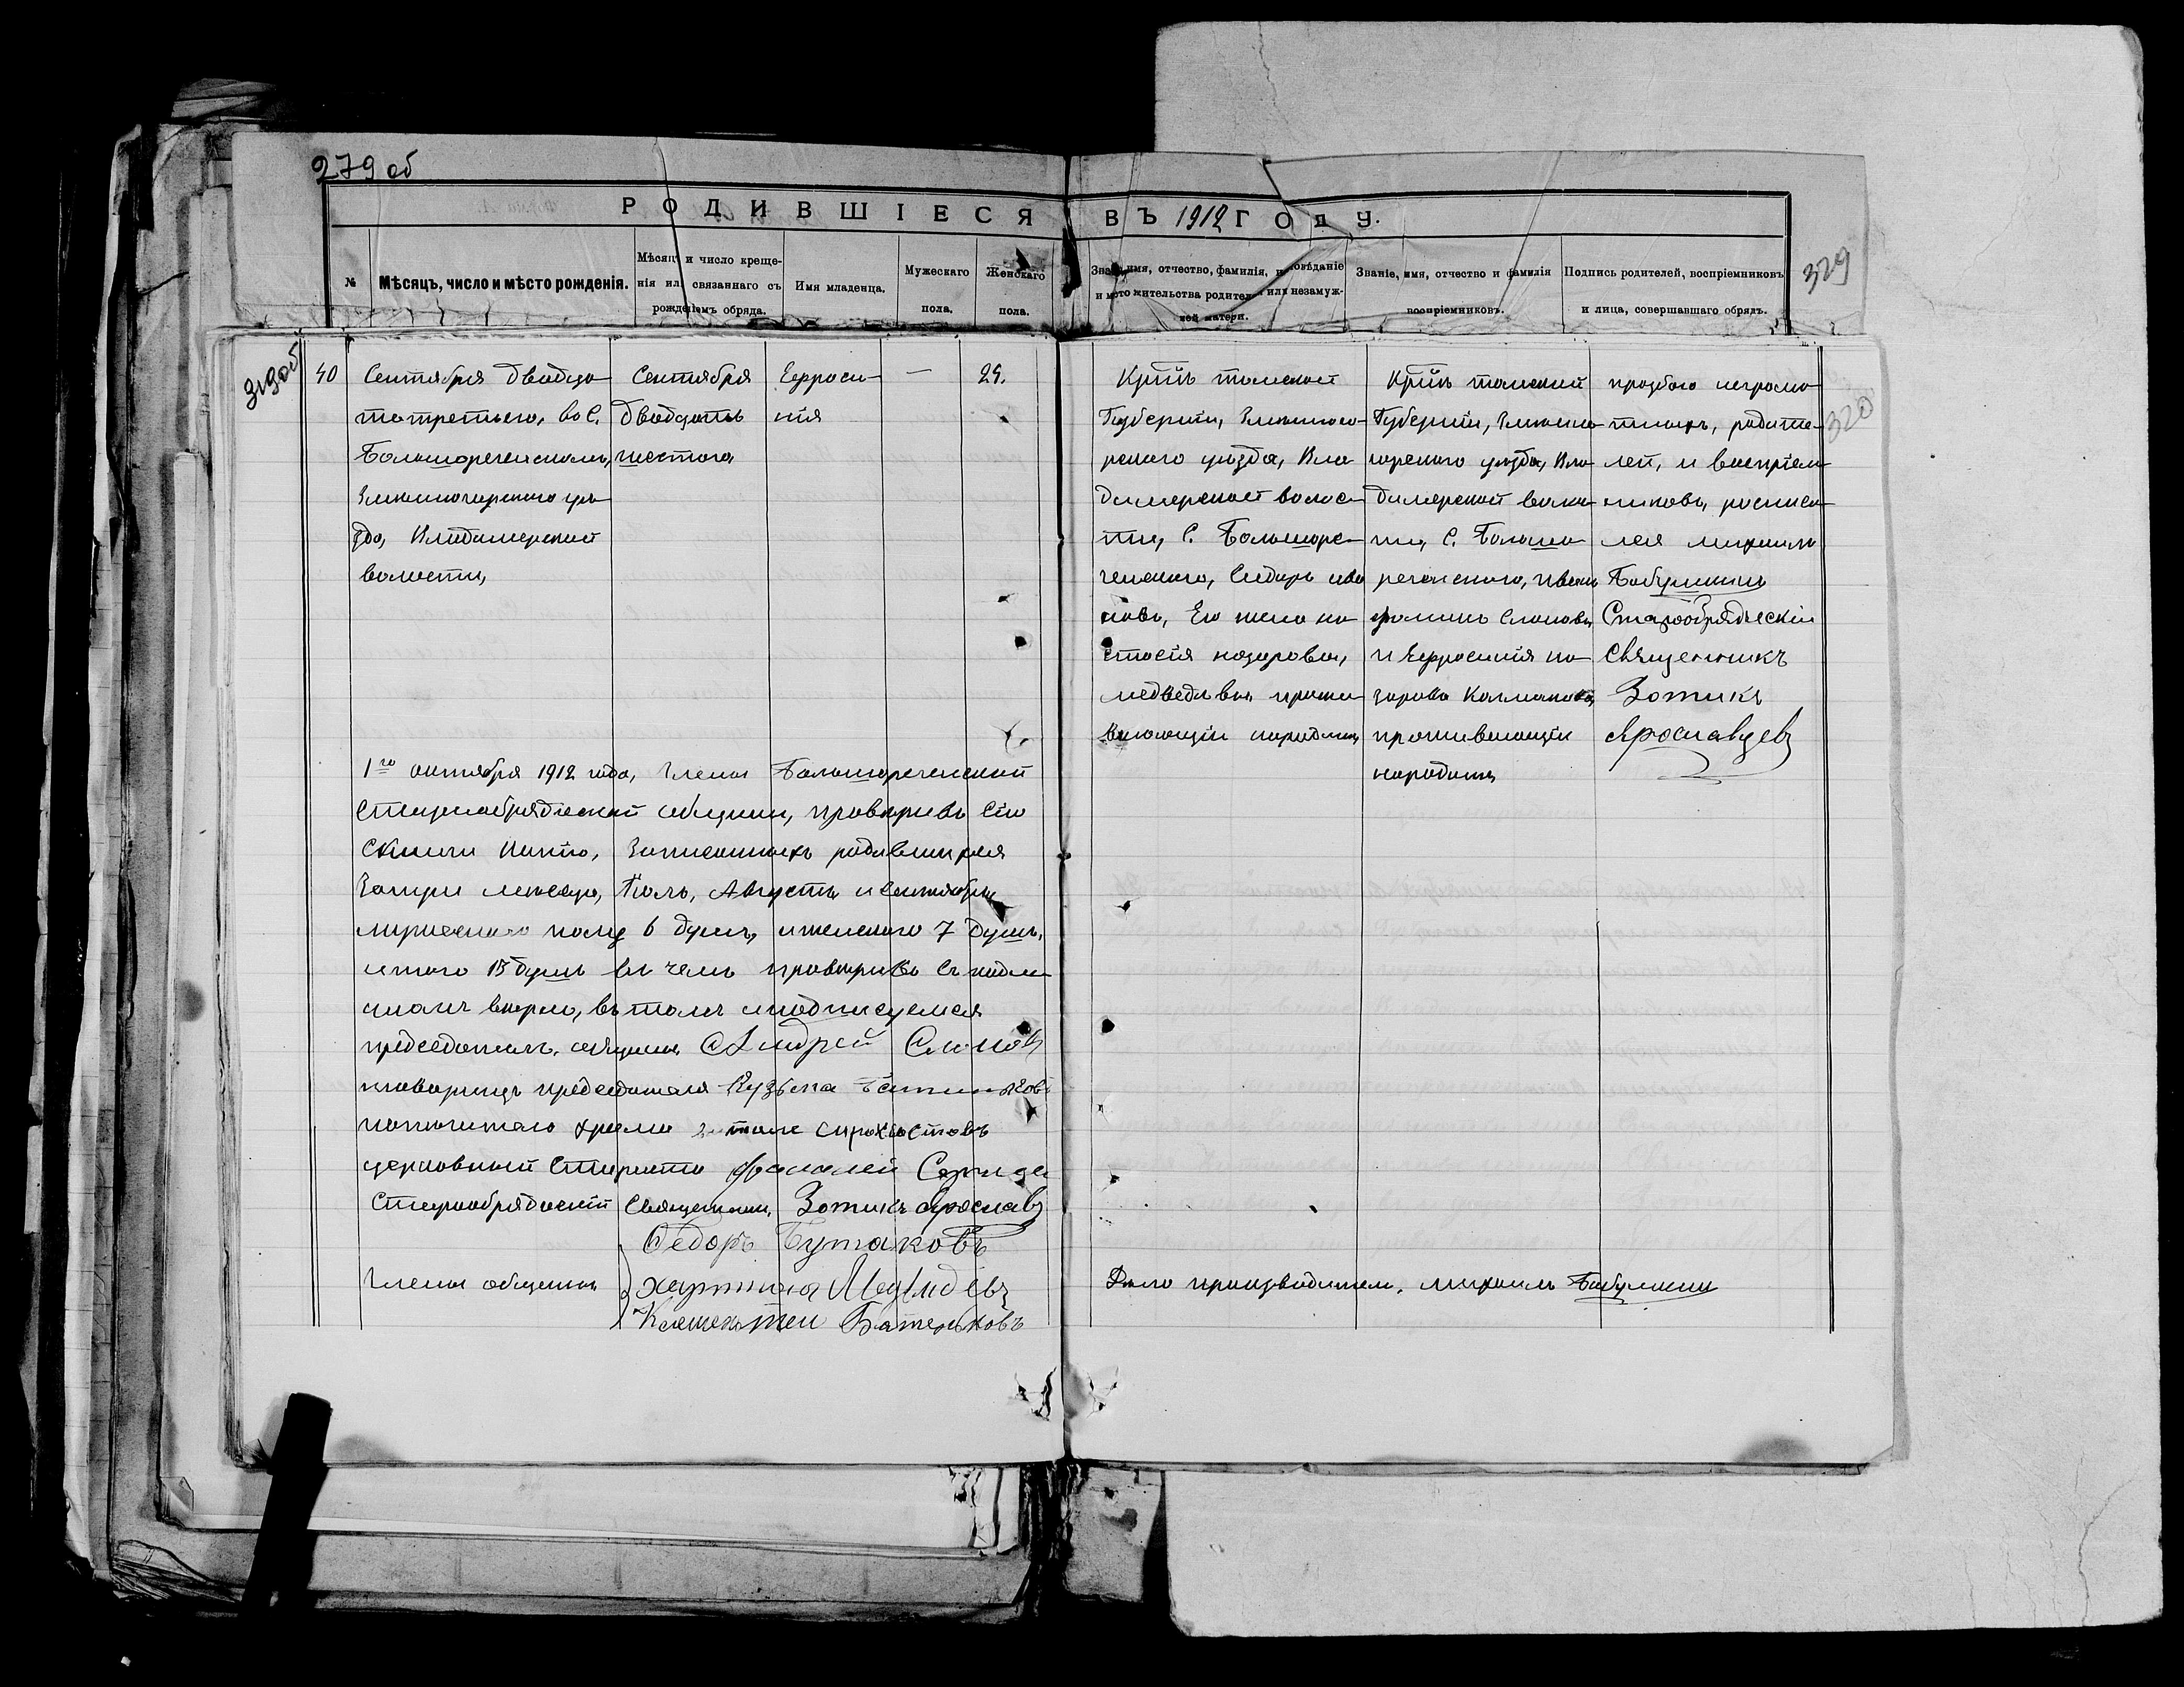 279 об
РОДИВШІЕСЯ ВЪ 1912 ГОДУ.
329
№
Мѣсяцъ, число и мѣсто рожденія.
Мѣсяцъ и число креще-
нія или связаннаго съ
рожденіемъ обряда.
Имя младенца.
Мужескаго
пола.
Женскаго
пола.
Званіе, имя, отчество, фамилія, исповѣданіе
и мѣсто жительства родителей или незамуж-
ней матери.
Званіе, имя, отчество и фамилія
воспріемниковъ.
Подпись родителей, воспріемниковъ
и лица, совершавшаго обрядъ.
319 об
320
40
Сентября двадца
татретьего, вос.
Большереченскомъ,
Змеиногорскаго уѣ
зда, Владимерской
волости,
Сентября
двадцать
шестого
Ефроси-
нія
—
24.
Кр̃нъ томской
Губерніи, Змеиного-
рскаго уѣзда, Вла
димерской волос-
ти, С. Большере-
ченскаго, Сидоръ ива
новъ, Его жена на
стасія назарова,
медведѣвы, прожи
вающіи народинѣ
Кр̃нъ томской
Губерніи, Змеино
горскаго уѣзда, Вла
димерской волос
ти, С. Больше
реченскаго, иванъ
Слоновъ,
и Ефросинія на
зарова Колмакова,
проживающіи
народинѣ
прозбою неграмо
тныхъ, родите-
лей, и воспріем-
никовъ, росписа-
лся михаилъ
Бабушкинъ
Старообрядческій
Священникъ
Зотикъ
Ярославцевъ
1го октября 1912 года, Члены Большереченской
Старообрядческой общины, провѣривъ Сію
Скниги, Записанныхъ родившихся
Затри месеца, Июль, Августъ и сентябрь
мужескаго полу 6 душъ, иженскаго 7 душъ,
итого 13 душъ въ чемъ провѣривъ Съ подли
ннымъ верно, втомъ иподписуемся
председатель, общины, Андрей Слоновъ
товарищъ председателя Кузьма
попечитель храма
церковный Староста
Старообрядческій Священникъ, Зотикъ Ярославц
Федоръ Бутаковъ
Члены общины харитонъ Медведевъ
Климентей Батеньковъ
Дело производитель, михаилъ Бабушкинъ